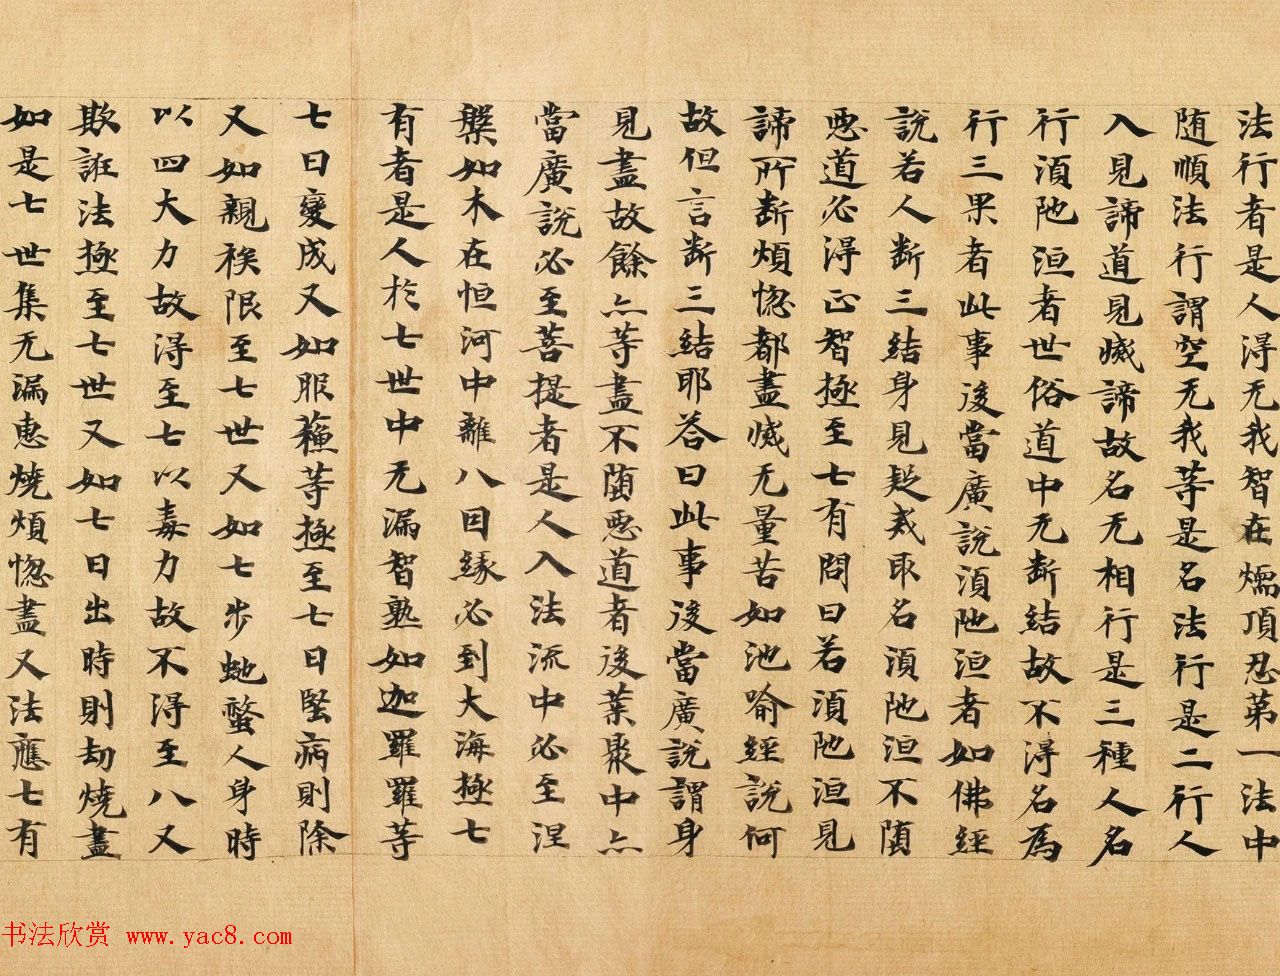 法行者是人得无我智在燸頂忍第一法中
随順法行謂空无我等是名法行是二行人
入見諦道見滅諦故名无相行是三種人名
行湏陁洹者世俗道中无断結故不淂名為
行三果者此事後當廣說湏陁洹者如佛經
說若人断三結身見疑戒取名湏陁洹不墮
惡道必得正智極至七有問曰若湏陁洹見
諦所断煩惚都盡滅无量苦如池喻經說何
故但言断三結耶荅曰此事後當廣說謂身
見盡故餘亦等盡不墮惡道者後業聚中亦
當廣說必至菩提者是人入法流中必至涅
槃如木在恒河中離八因緣必到大海極七
有者是人於七世中无漏智熟如迦羅羅等
七日變成又如服蘓等極至七日堅病則除
又如親族限至七世又如七步虵螫人身時
以四大力故淂至七以毒力故不淂至八又
欺誑法極至七世又如七日出時則劫燒盡
如是七世集无漏惠燒煩惚盡又法應七有
书法欣赏 www.yac8.com